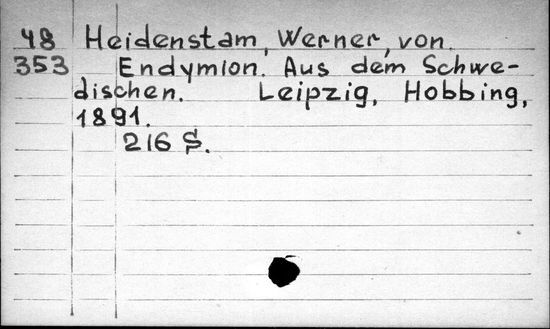 48 Heidenstam, Werner, von.
353 Endymion. Aus dem Schwe-
dischen. Leipzig, Hobbing,
1891.
216 S.